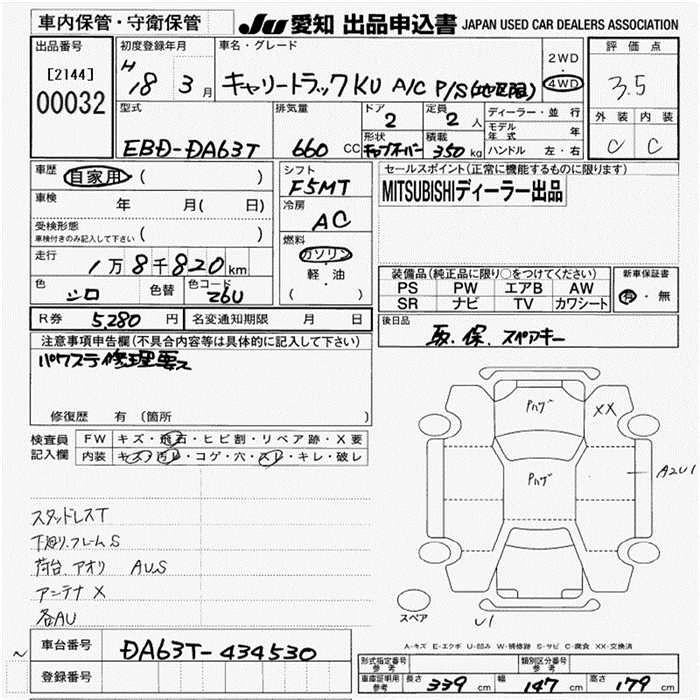 車内保管・守衛保管 JU 愛知 出品申込書 JAPAN USED CAR DEALERS ASSOCIATION
出品番号 初度登録年月 車名・グレード 2WD・4WD 評価点
[2144] 00032 H 18 3月 キャリートラックKU A/C P/S 3.5
型式 排気量 ドア 定員 ディーラー・並行 外装 内装
EBD-DA63T 660 CC 2 2人 モデル年式 年 C C
形状 積載 350 kg ハンドル 左・右
車歴 自家用 ( ) シフト F5MT セールスポイント(正常に機能するものに限ります)
車検 年 月( 日) 冷房 AC MITSUBISHIディーラー出品
受検形態 車検付きのみ記入して下さい ( )
走行 1万8千820km 燃料 ガソリン 軽・油 ( )
装備品(純正品に限り○をつけてください) 新車保証書
PS PW エアB AW 有・無
SR ナビ TV カワシート
色 シロ 色替 色コード Z6U
R券 5,280円 名変通知期限 月 日 後日品 取.保.スペアキー
注意事項申告欄(不具合内容等は具体的に記入して下さい)
パワステ修理要ス
修復歴 有 (箇所 )
検査員記入欄 FW キズ・飛石・ヒビ割・リペア跡・X要
内装 キズ・汚レ・コゲ・穴・スレ・キレ・破レ
Pハゲ XX
Pハゲ A2U1
スタッドレスT
下廻リ.フレームS
荷台.アオリ AUS
アンテナX
各AU
スペア U1
A-キズ E-エクボ U-凹み W-補修跡 S-サビ C-腐食 XX-交換済
車台番号 DA63T-434530
登録番号
型式指定番号 参考 類別区分番号 参考
車庫証明用 参考 長さ 339 cm 幅 147 cm 高さ 179 cm